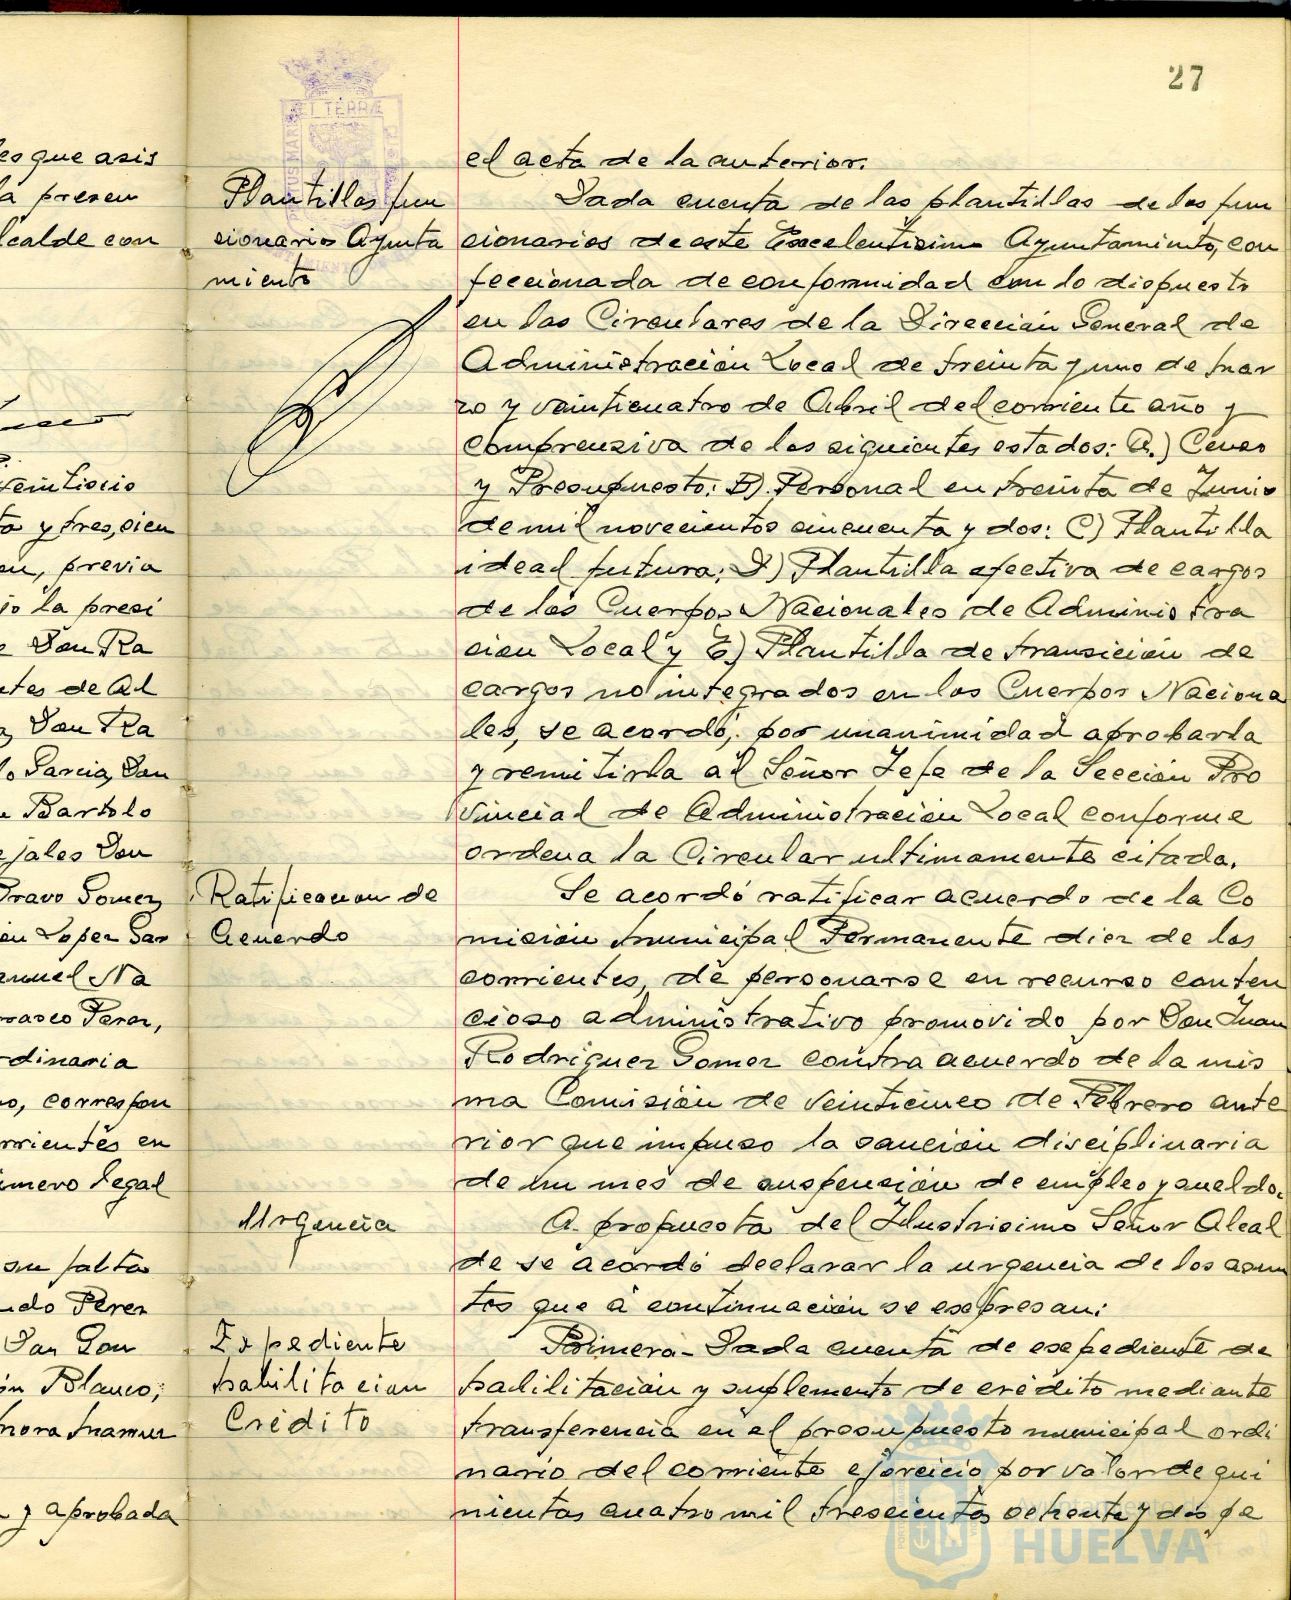 27
es que asis
a presen
lcalde con
veintiseis
ta y tres, sien
on, previa
jo la presi
Don Ra
ntes de Al
Don Ra
lo Garcia, Don
Bartolo
ejales Don
Bravo Gomez
ón Lopez Gar
anuel Na
rrasco Perez,
rdinaria
no, correspon
rrientes en
úmero legal
su falta
ndo Perez
Don Gon
ón Blanco,
y aprobada
Plantillas fun
cionarios Ayunta
miento
Ratificacion de
Acuerdo
Urgencia
Expediente
habilitacion
Crédito
el acta de la anterior.
Dada cuenta de las plantillas de los fun
cionarios de este Excelentísimo Ayuntamiento, con
feccionada de conformidad con lo dispuesto
en las Circulares de la Dirección General de
Administración Local de treinta y uno de Mar
zo y veinticuatro de Abril del corriente año y
comprensiva de los siguientes estados: A.) Censo
y Presupuesto: B). Personal en treinta de Junio
de mil novecientos cincuenta y dos: C) Plantilla
ideal futura; D) Plantilla efectiva de cargos
de los Cuerpos Nacionales de Administra
cion Local y E) Plantilla de transición de
cargos no integrados en los Cuerpos Naciona
les, se acordó, por unanimidad aprobarla
y remitirla al Señor Jefe de la Sección Pro
vincial de Administración Local conforme
ordena la Circular ultimamente citada.
Se acordó ratificar acuerdo de la Co
misión Municipal Permanente diez de los
corrientes, de personarse en recurso conten
cioso administrativo promovido por Don Juan
Rodriguez Gomez contra acuerdo de la mis
ma Comisión de veinticinco de Febrero ante
rior que impuso la sanción disciplinaria
de un mes de suspensión de empleo y sueldo.
A propuesta del Ilustrisimo Señor Alcal
de se acordó declarar la urgencia de los asun
tos que á continuación se expresan:
Primero- Dada cuenta de expediente de
habilitación y suplemento de crédito mediante
transferencia en el presupuesto municipal ordi
nario del corriente ejercicio por valor de qui
nientas cuatro mil trescientas ochenta y dos pe
Ayuntamiento de
HUELVA